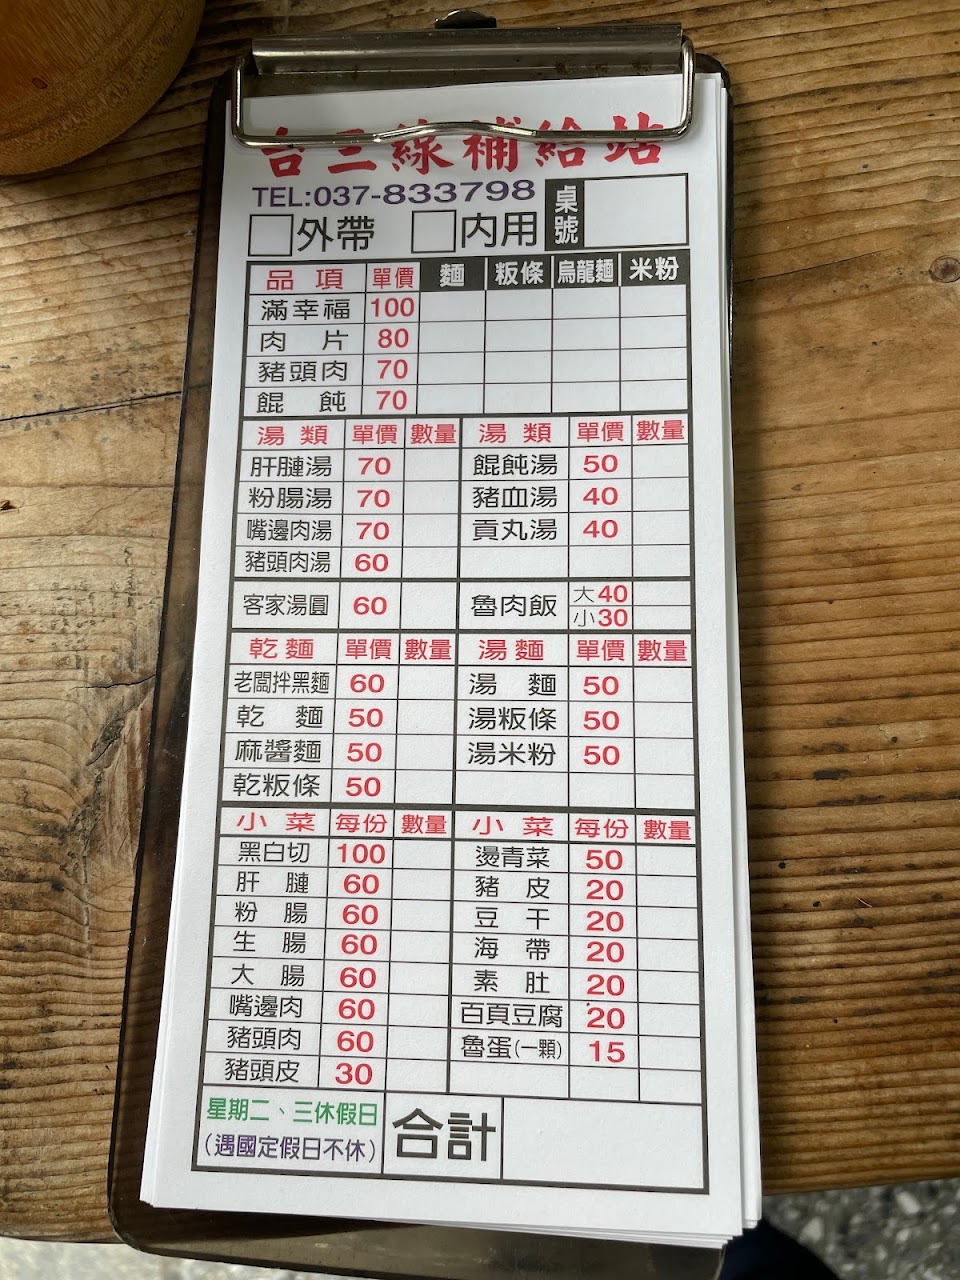 台三線補給站
TEL:037-833798
桌號
外帶 內用
品項 單價 麵 粄條 烏龍麵 米粉
滿幸福 100
肉片 80
豬頭肉 70
餛飩 70
湯類 單價 數量 湯類 單價 數量
肝腱湯 70 餛飩湯 50
粉腸湯 70 豬血湯 40
嘴邊肉湯 70 貢丸湯 40
豬頭肉湯 60
客家湯圓 60 魯肉飯 大40
小30
乾麵 單價 數量 湯麵 單價 數量
老闆拌黑麵 60 湯麵 50
乾麵 50 湯粄條 50
麻醬麵 50 湯米粉 50
乾粄條 50
小菜 每份 數量 小菜 每份 數量
黑白切 100 燙青菜 50
肝腱 60 豬皮 20
粉腸 60 豆干 20
生腸 60 海帶 20
大腸 60 素肚 20
嘴邊肉 60 百頁豆腐 20
豬頭肉 60 魯蛋(一顆) 15
豬頭皮 30
星期二、三休假日
(遇國定假日不休)
合計